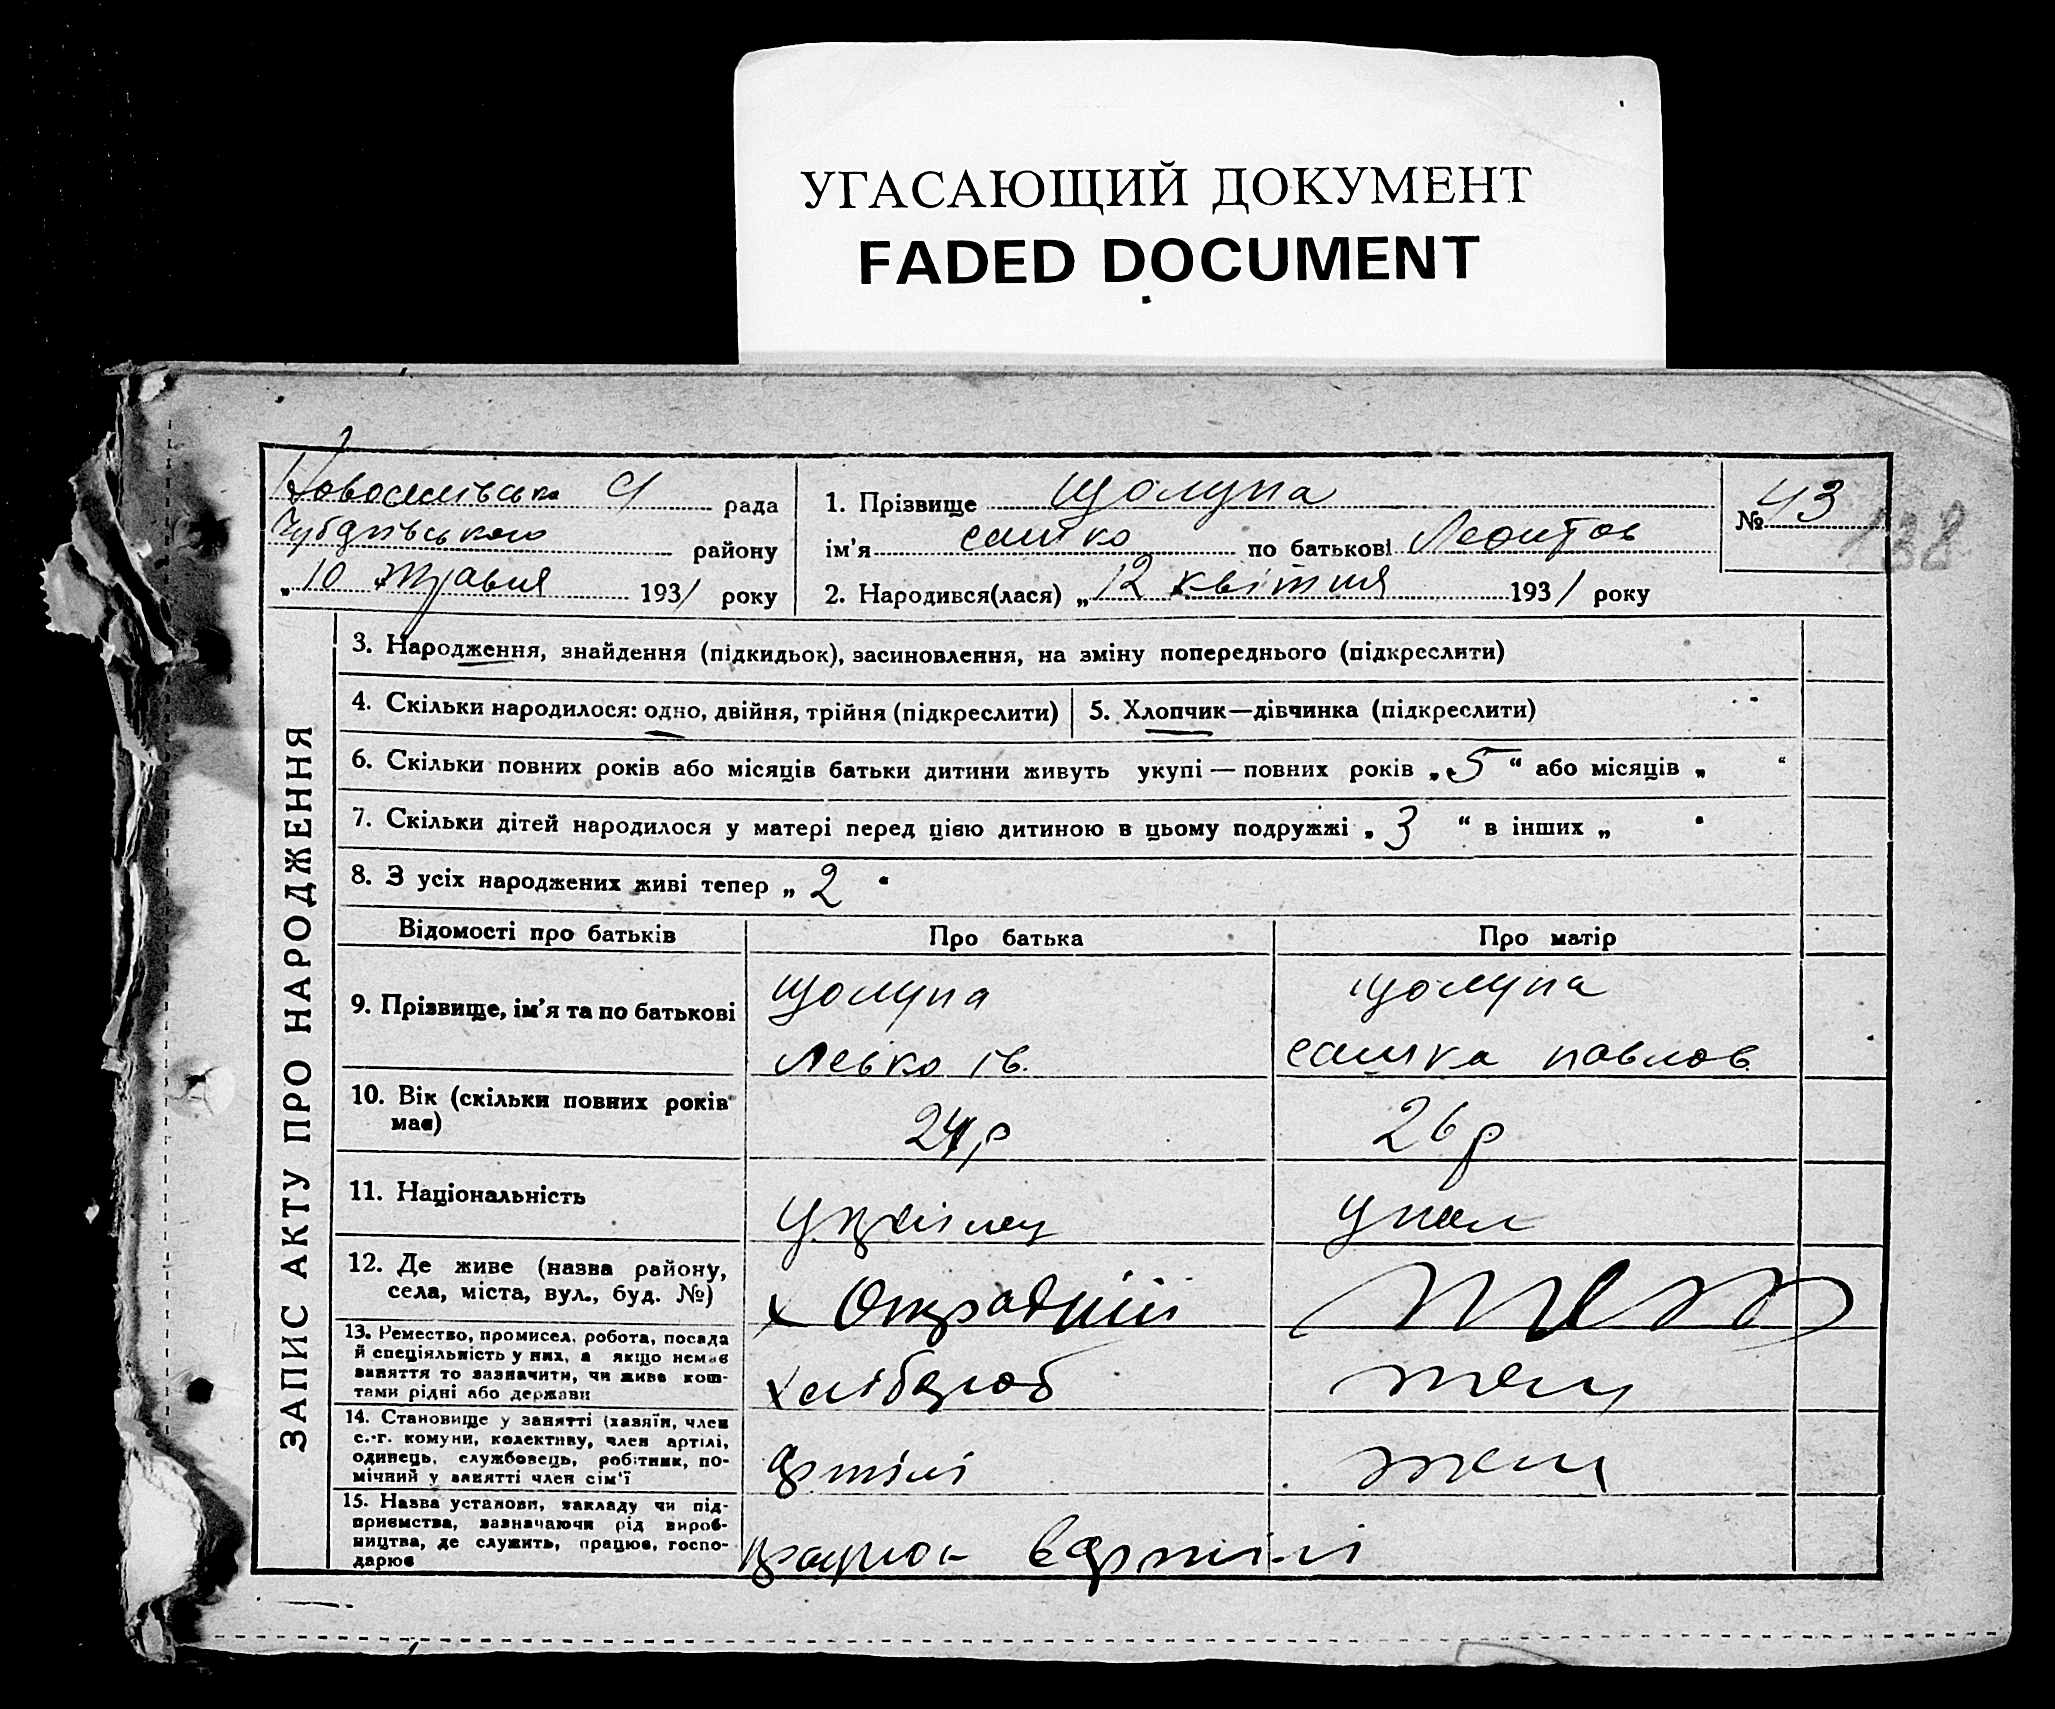 УГАСАЮЩИЙ ДОКУМЕНТ
FADED DOCUMENT
Новоселівська рада
району
„10 Травня 1931 року
1. Прізвище Щолупа
ім'я сашко по батькові Леонтов
2. Народився(лася) „12 квітня 1931 року
№ 43
138
ЗАПИС АКТУ ПРО НАРОДЖЕННЯ
3. Народження, знайдення (підкидьок), засиновлення, на зміну попереднього (підкреслити)
4. Скільки народилося: одно, двійня, трійня (підкреслити)
5. Хлопчик—дівчинка (підкреслити)
6. Скільки повних років або місяців батьки дитини живуть укупі — повних років „5“ або місяців „ “
7. Скільки дітей народилося у матері перед цією дитиною в цьому подружжі „3“ в інших „ “
8. З усіх народжених живі тепер „2“
Відомості про батьків
Про батька
Про матір
9. Прізвище, ім'я та по батькові
Щолупа
Левко ів.
Щолупа
сашка павлов
10. Вік (скільки повних років
має)
24 р
26 р
11. Національність
Українец
12. Де живе (назва району,
села, міста, вул., буд. №)
х Отрадний
13. Ремество, промисел, робота, посада
й спеціяльність у них, а якщо немає
заняття то зазначити, чи живе кош-
тами рідні або держави
хлібороб
14. Становище у занятті (хазяїн, член
с.-г. комуни, колективу, член артілі,
одинець, службовець, робітник, по-
мічний у занятті член сім'ї
артілі
15. Назва установи, закладу чи під-
приємства, зазначаючи рід вироб-
ництва, де служить, працює, госпо-
дарює
працює в артілі